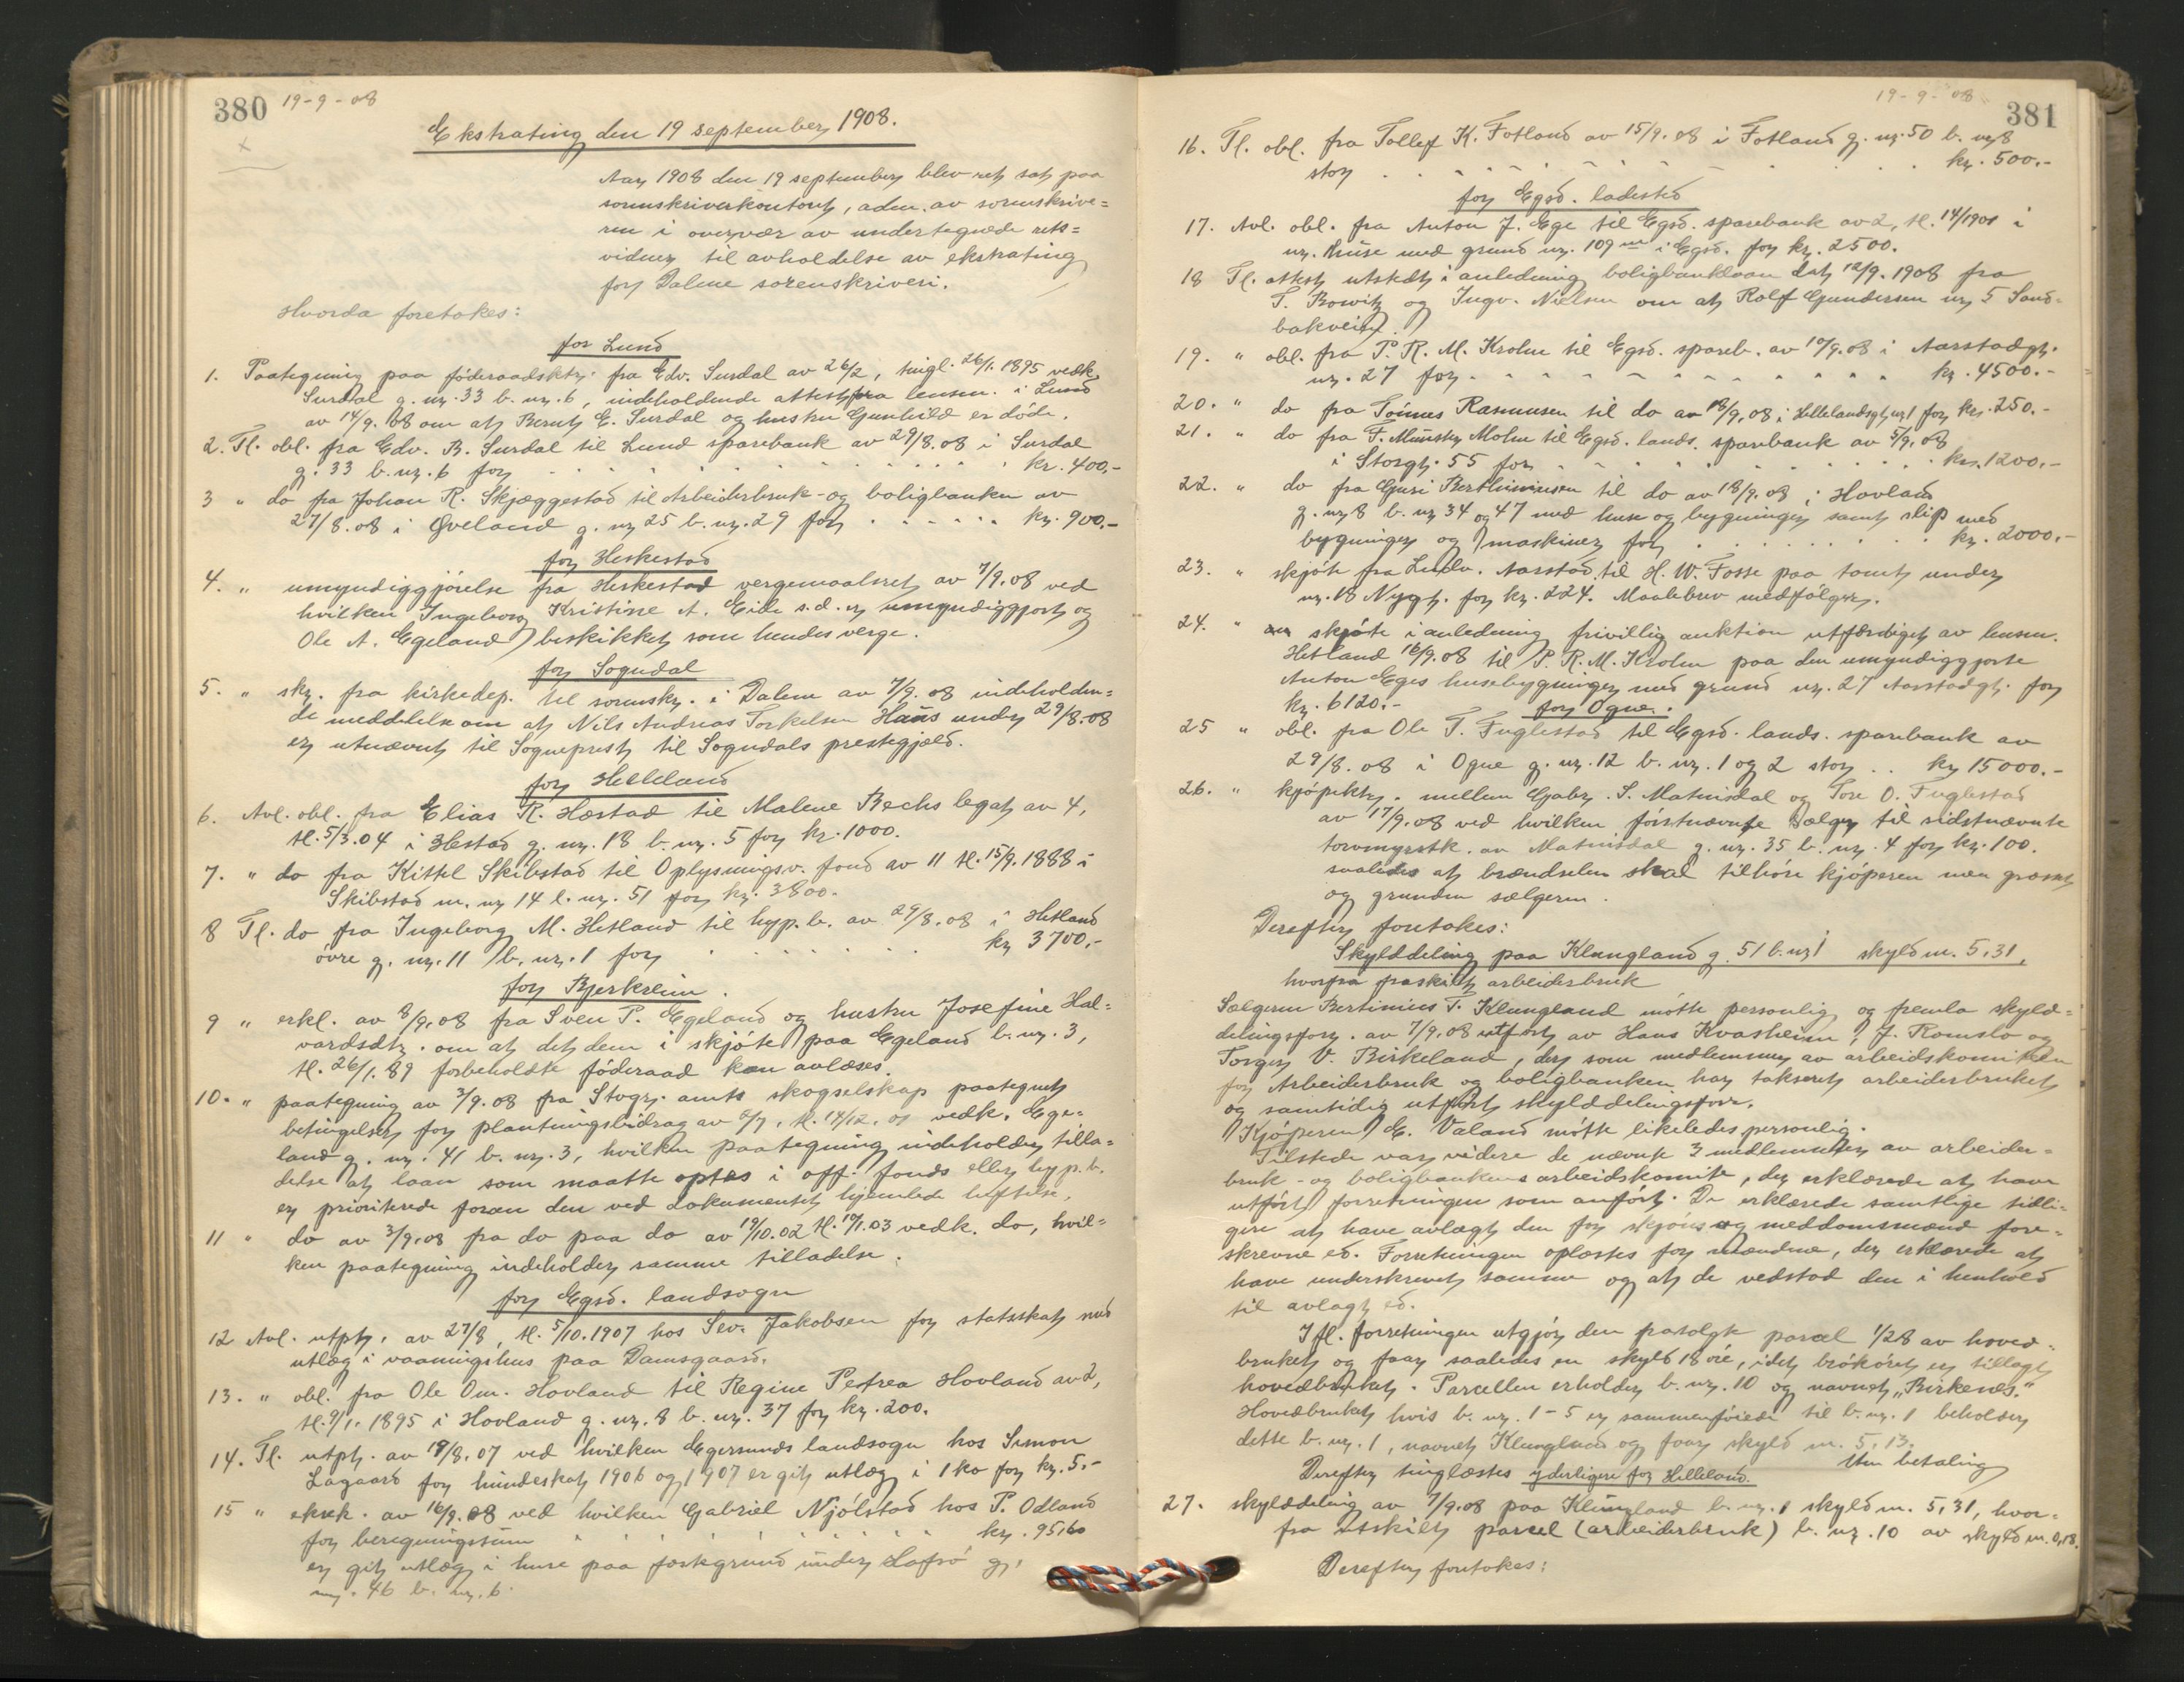 380 19-9-08
Ekstrating den 19 september 1908.
Aar 1908 den 19 september blev ret sat paa
sorenskriverkontoret, adm. av sorenskrive=
ren i overvær av undertegnede rets=
vidner til avholdelse av ekstrating
for Dalene sorenskriveri.
Hvorda foretokes:
for Lund
1. Paategning paa föderaadsktr. fra Edv. Surdal av 26/2, tingl. 26/1. 1895 vedk.
Surdal g. nr. 33 b. nr. 6, indeholdende attest fra lensm. i Lund
av 14/9. 08 om at Bernt E. Surdal og hustru Gunhild er döde.
2. Tl. obl. fra Edv. B. Surdal til Lund sparebank av 29/8. 08 i Surdal
g. 33 b. nr. 6 for kr. 400,-
3 " do fra Johan R. Skjæggestad til Arbeiderbruk- og boligbanken av
27/8. 08 i Eveland g. nr 25 b. nr. 29 for kr. 900,-
for Heskestad
4. " umyndiggjörelse fra Heskestad vergemaalsret av 7/9. 08 ved
hvilken Ingeborg Kristine A. Eide s.d. er umyndiggjort og
Ole A. Egeland beskikket som hendes verge.
for Sogndal
5. " skr. fra kirkedep. til sorenskr. i Dalene av 7/9. 08 indeholden=
de meddelelse om at Nils Andreas Torkelsen Haus under 29/8. 08
er utnævnt til Sogneprest til Sogndals prestegjeld.
for Helleland
6. Avl. obl. fra Elias R. Hæstad til Malene Bechs legat av 4,
tl. 5/3. 04 i Hestad g. nr. 18 b. nr. 5 for kr. 1000.
7. " do fra Kittel Skibstad til Oplysningsv. fond av 11 tl. 15/9. 1888 i
Skibstad m. nr 14 l. nr. 51 for kr. 3800.
8 Tl. do fra Ingeborg M. Hetland til hyp. b. av 29/8. 08 i Hetland
övre g. nr. 11 b. nr. 1 for kr 3700,-
for Bjerkreim.
9 " erkl. av 8/9. 08 fra Sven P. Egeland og hustru Josefine Hal=
vardsdtr. om at det dem i skjöte paa Egeland b. nr. 3,
tl. 26/1. 89 forbeholdte föderaad kan avlæses.
10. " paategning av 3/9. 08 fra Stvgr. amts skogselskap paategnet
betingelser for plantningsbidrag av 2/7, tl. 14/12. 01 vedk. Ege=
land g. nr. 41 b. nr. 3, hvilken paategning indeholder tilla=
delse at laan som maatte optas i off. fonds eller hyp. b.
er prioriterede foran den ved dokumentet hjemlede heftelse.
11 " do av 3/9. 08 fra do paa do av 19/10. 02 tl. 19/1. 03 vedk. do, hvil=
ken paategning indeholder samme tilladelse.
for Egsd. landsogn
12 Avl. utpt. av 27/8, tl. 5/10. 1907 hos Sev. Jakobsen for statsskat med
utlæg i vaaningshus paa Damsgaard.
13. " obl. fra Ole Om. Hovland til Regine Petrea Hovland av 2,
tl. 9/1. 1895 i Hovland g. nr. 8 b. nr. 37 for kr. 200.
14. Tl. utpt. av 19/8. 07 ved hvilken Egersunds landsogn hos Simon
Lagaard for hundeskat 1906 og 1907 er git utlæg i 1 ko for kr. 5.-
15 " eksek. av 16/9. 08 ved hvilken Gabriel Njölstad hos P. Odland
for beregningssum kr. 95,60
er git utlæg i huse paa festegrund under g.
nr. 46 b. nr. 6.
19-9-08 381
16. Tl. obl. fra Tollef K. Fotland av 15/9. 08 i Fotland g. nr. 50 b. nr 8
stor kr. 500.-
for Egsd. ladested
17. Avl. obl. fra Anton J. Ege til Egsd. sparebank av 2, tl. 14/1901 i
nr. huse med grund nr. 109 i Egsd. for kr. 2500.
18 Tl. attest utstedt i anledning boliglaan dat 12/9. 1908 fra
T. Bowitz og Ingv. Nielsen om at Rolf Gundersen nr 5 Sand=
bakveien.
19. " obl. fra P. R. M. Krohn til Egsd. spareb. av 10/9. 08 i Aarstadgt.
nr. 27 for kr. 4500.-
20. " do fra Tönnes Rasmussen til do av 18/9. 08 i Hellelandsgt nr 1 for kr. 250.-
21. " do fra F. Münster Mohn til Egsd. lands. sparebank av 5/9. 08
i Storgt. 55 for kr. 1200.-
22. " do fra Guri Berthiniusen til do av 18/9. 08 i Hovland
g. nr 8 b. nr 34 og 47 med huse og bygninger samt slip med
bygninger og maskiner for kr. 2000.-
23. " skjöte fra Ludv. Aarstad til H. W. Fosse paa tomt under
nr. 18 Nygt. for kr. 224. Maalebrev medfölger.
24. " skjöte i anledning frivillig auktion utfærdiget av lensm.
Hetland 16/9. 08 til P. R. M. Krohn paa den umyndiggjorte
Anton Eges husebygninger med grund nr. 27 Aarstadgt. for
kr. 6120.-
for Ogne.
25 " obl. fra Ole T. Fuglestad til Egsd. lands. sparebank av
29/8. 08 i Ogne g. nr. 12 b. nr. 1 og 2 stor .. kr 15000.-
26. " kjöpektr. mellem Gabr. S. Matnisdal og Tore O. Fuglestad
av 17/9. 08 ved hvilken förstnævnte sælger til sidstnævnte
torvmyrstk. av Matnisdal g. nr. 35 b. nr. 4 for kr. 100.
saaledes at brændselen skal tilhöre kjöperen men græsset
og grunden sælgeren.
Derefter foretokes:
Skylddeling paa Klungland g. 51 b. nr 1 skyld m. 5,31,
hvorfra fraskilt arbeiderbruk
Sælgeren Bertinius T. Klungland mötte personlig og fremla skyld=
delingsforr. av 7/9. 08 utfört av Hans Kvasheim, J. Romslo og
Torger V. Birkeland, der som medlemmer av arbeidskomiteen
for Arbeiderbruk og boligbanken har takseret arbeiderbruket
og samtidig utfört skylddelingsforr.
Kjöperen E. Valand mötte likeledes personlig.
Tilstede var videre de nævnte 3 medlemmer av arbeider=
bruk- og boligbankens arbeidskomite, der erklærede at have
utfört forretningen som anfört. De erklærede samtlige tidli=
gere at have avlagt den for skjöns og meddomsmænd fore=
skrevne ed. Forretningen oplæstes for mændene, der erklærede at
have underskrevet samme og at de vedstod den i henhold
til avlagt ed.
Ifl. forretningen utgjör den frasolgte parcel 1/28 av hoved=
bruket og faar saaledes en skyld 18 öre, idet brökören er tillagt
hovedbruket. Parcellen erholder b. nr. 10 og navnet "Birkenes."
Hovedbruket hvis b. nr. 1-5 er sammenföiede til b. nr. 1 beholder
dette b. nr. 1, navnet Klungland og faar skyld m. 5,13.
Uten betaling
Derefter tinglæstes yderligere for Helleland.
27. skylddeling av 7/9. 08 paa Klungland b. nr. 1 skyld m. 5,31, hvor=
fra utskilt parcel (arbeiderbruk) b. nr. 10 av skyld m. 0,18.
Derefter foretokes: